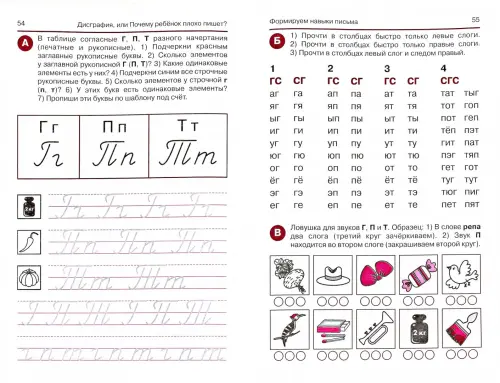 54 Дисграфия, или Почему ребёнок плохо пишет?
А
В таблице согласные Г, П, Т разного начертания
(печатные и рукописные). 1) Подчеркни красным
заглавные рукописные буквы. 2) Сколько элементов
у заглавной рукописной Г (П, Т)? 3) Какие одинаковые
элементы есть у них? 4) Подчеркни синим все строчные
рукописные буквы. 5) Сколько элементов у строчной г
(п, т)? 6) У этих букв есть одинаковые элементы?
7) Пропиши эти буквы по шаблону под счёт.
Гг Пп Тт
Гг Пп Тт
2 кг
Формируем навыки письма 55
Б
1) Прочти в столбцах быстро только левые слоги.
2) Прочти в столбцах быстро только правые слоги.
3) Прочти в столбцах левый слог и следом правый.
1 2 3 4
ГС СГ ГС СГ ГС СГ СГС
аг га ап па ат та тат тыг
яг гя яп пя ят тя тот гоп
ыг гы ып пы ыт ты пат гап
иг ги ип пи ит ти тёп пэт
уг гу уп пу ут ту пут гут
юг гю юп пю ют тю пэг тяп
ог го оп по от то пят гэт
ёг гё ёп пё ёт тё туг тут
эг гэ эп пэ эт тэ тюг пиг
ег ге еп пе ет те гыт гег
В
Ловушка для звуков Г, П и Т. Образец: 1) В слове репа
два слога (третий круг зачёркиваем). 2) Звук П
находится во втором слоге (закрашиваем второй круг).
2 кг